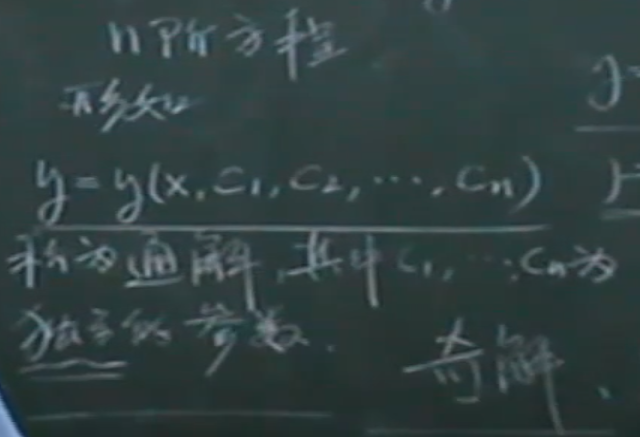 n阶方程
形如
y=y(x,c₁,c₂,⋯,cₙ)
称为通解,其中c₁,⋯,cₙ为
独立的参数.
奇解、